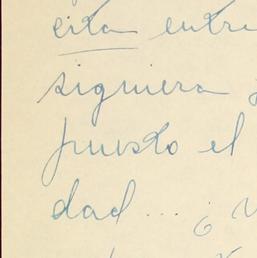 cita entre
siquiera
puesto el
dad... ¿